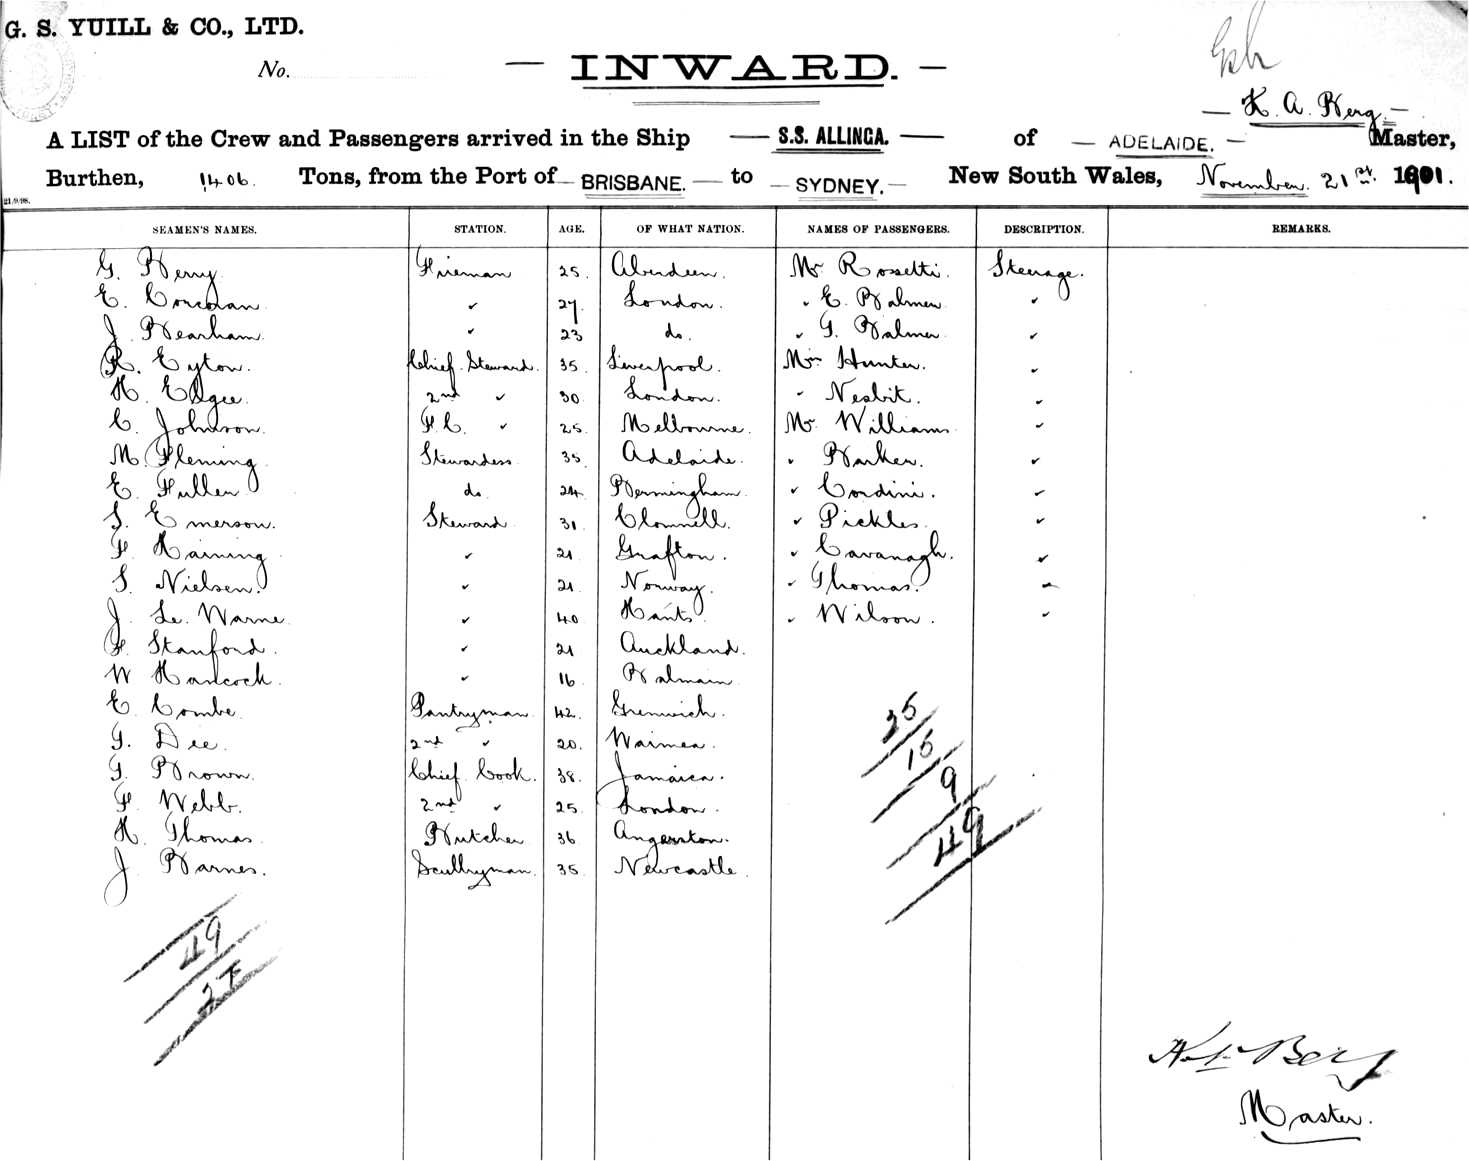 G. S. YUILL & CO., LTD.
No.
— INWARD. —
— K. A. Berg. —
A LIST of the Crew and Passengers arrived in the Ship — S.S. ALLINGA. — of — ADELAIDE. — Master,
Burthen, 1406. Tons, from the Port of — BRISBANE. — to — SYDNEY. — New South Wales, November. 21st. 1901.
21/9/98.
SEAMEN'S NAMES. STATION. AGE. OF WHAT NATION. NAMES OF PASSENGERS. DESCRIPTION. REMARKS.
G. Berry Fireman 25. Aberdeen. Mr Rossetti. Steerage.
E. Corcoran ✓ 27. London. ✓ E. Balmer ✓
J. Bearham ✓ 23 do. ✓ G. Balmer ✓
R. Eyton. Chief Steward. 35. Liverpool. Mrs Hunter. ✓
H. Edgee 2nd ✓ 30 London. ✓ Nesbit. ✓
C. Johnson. F.C. ✓ 25. Melbourne. Mr Williams ✓
M. Fleming Stewardess 35. Adelaide. ✓ Barker. ✓
E. Fuller do. 24. Bermingham ✓ Cordini. ✓
S. Emerson. Steward 31 Clomnell. ✓ Pickles ✓
F. Haining ✓ 21 Grafton. ✓ Cavanagh. ✓
S. Nielsen. ✓ 21 Norway. ✓ Thomas. ✓
J. Le. Warne ✓ 40 Hants. ✓ Wilson. ✓
F. Stanford. ✓ 21 Auckland.
W Hancock. ✓ 16 Balmain
E. Combe. Pantryman. 42. Grenwich.
G. Dee. 2nd ✓ 20. Waimea.
G. Brown. Chief Cook. 38. Jamaica.
F. Webb. 2nd ✓ 25. London.
H. Thomas Butcher 36 Angerston.
J Barnes. Scullryman. 35. Newcastle.
25
15
9
49
49
27
Berg
Master.